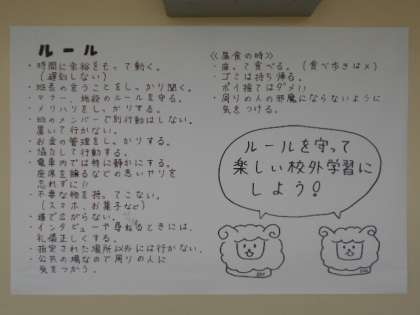 ルール
・時間に余裕をもって動く。
(遅刻しない)
・班長の言うことをしっかり聞く。
・マナー、施設のルールを守る。
・メリハリをしっかりする。
・他のメンバーで別行動はしない。
置いて行かない。
・お金の管理をしっかりする。
・協力して行動する。
・電車内では特に静かにする。
座席を譲るなどの思いやりを
忘れずに!!
・不必要な物を持ってこない。
(スマホ、お菓子など)
・道で広がらない。
・インタビューや尋ねるときには、
礼儀正しくする。
・指定された場所以外には行かない。
・公共の場なので周りの人に
気をつかう。
《昼食の時》
・座って食べる。(食べ歩きは×)
・ゴミは持ち帰る。
ポイ捨てはダメ!!
・周りの人の邪魔にならないように
気をつける。
ルールを守って
楽しい校外学習に
しよう!